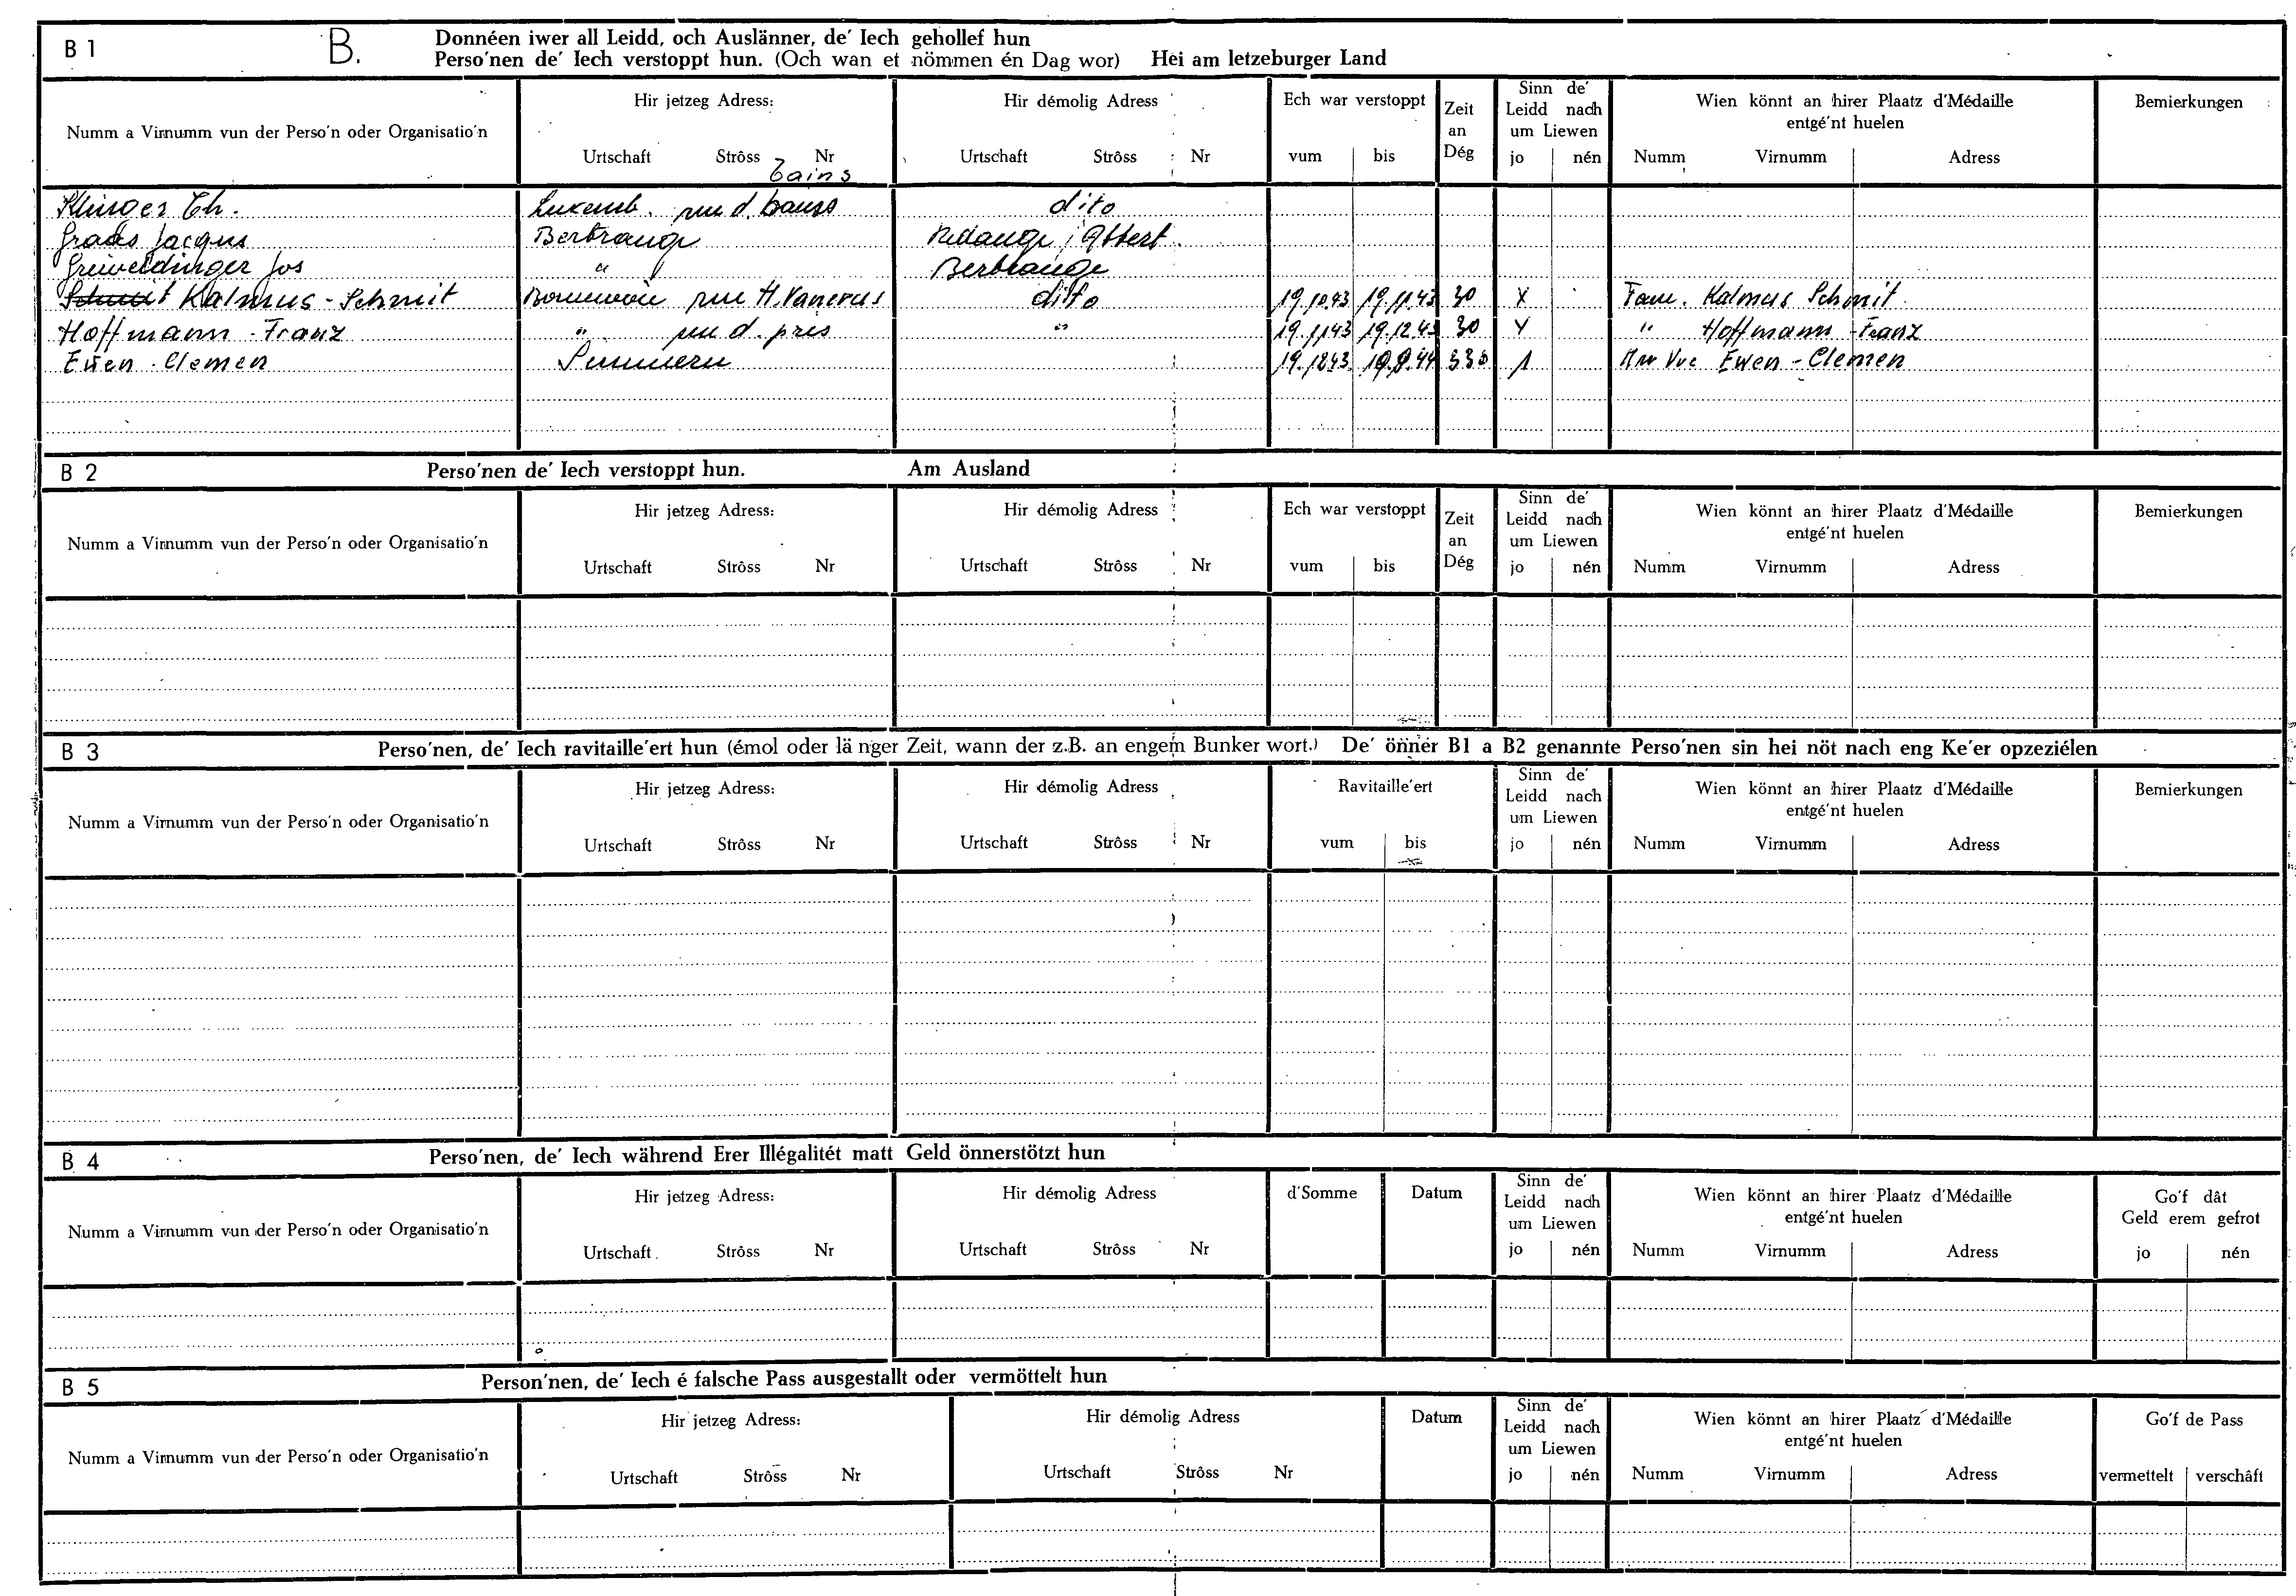 B 1 B. Donnéen iwer all Leidd, och Auslänner, de' Iech gehollef hun
Perso'nen de' Iech verstoppt hun. (Och wan et nömmen én Dag wor) Hei am letzeburger Land
Numm a Virnumm vun der Perso'n oder Organisatio'n
Hir jetzeg Adress:
Urtschaft Strôss Nr
Hir démolig Adress
Urtschaft Strôss Nr
Ech war verstoppt
vum bis
Zeit
an
Dég
Sinn de'
Leidd nach
um Liewen
jo nén
Wien könnt an hirer Plaatz d'Médaille
entgé'nt huelen
Numm Virnumm Adress
Bemierkungen
bains
Klinger Th. Luxemb. rue d. bains dito
Jacques Bertrange Redange / Attert
Greiveldinger Jos " Bertrange
Kalmus - Schmit Bonnevoie rue H. Vannerus dito 19.10.43 19.11.43 30 X Fam. Kalmus Schmit
Hoffmann - Franz " rue d. prés " 19.11.43 19.12.43 30 X " Hoffmann - Franz
Ewen - Clemen 19.12.43 Vve Ewen - Clemen
B 2 Perso'nen de' Iech verstoppt hun. Am Ausland
Numm a Virnumm vun der Perso'n oder Organisatio'n
Hir jetzeg Adress:
Urtschaft Strôss Nr
Hir démolig Adress
Urtschaft Strôss Nr
Ech war verstoppt
vum bis
Zeit
an
Dég
Sinn de'
Leidd nach
um Liewen
jo nén
Wien könnt an hirer Plaatz d'Médaille
entgé'nt huelen
Numm Virnumm Adress
Bemierkungen
B 3 Perso'nen, de' Iech ravitaille'ert hun (émol oder länger Zeit, wann der z.B. an engem Bunker wort.) De' önner B1 a B2 genannte Perso'nen sin hei nöt nach eng Ke'er opzeziélen
Numm a Virnumm vun der Perso'n oder Organisatio'n
Hir jetzeg Adress:
Urtschaft Strôss Nr
Hir démolig Adress
Urtschaft Strôss Nr
Ravitaille'ert
vum bis
Sinn de'
Leidd nach
um Liewen
jo nén
Wien könnt an hirer Plaatz d'Médaille
entgé'nt huelen
Numm Virnumm Adress
Bemierkungen
B 4 Perso'nen, de' Iech während Erer Illégalitét matt Geld önnerstötzt hun
Numm a Virnumm vun der Perso'n oder Organisatio'n
Hir jetzeg Adress:
Urtschaft Strôss Nr
Hir démolig Adress
Urtschaft Strôss Nr
d'Somme
Datum
Sinn de'
Leidd nach
um Liewen
jo nén
Wien könnt an hirer Plaatz d'Médaille
entgé'nt huelen
Numm Virnumm Adress
Go'f dât
Geld erem gefrot
jo nén
B 5 Person'nen, de' Iech é falsche Pass ausgestallt oder vermöttelt hun
Numm a Virnumm vun der Perso'n oder Organisatio'n
Hir jetzeg Adress:
Urtschaft Strôss Nr
Hir démolig Adress
Urtschaft Strôss Nr
Datum
Sinn de'
Leidd nach
um Liewen
jo nén
Wien könnt an hirer Plaatz d'Médaille
entgé'nt huelen
Numm Virnumm Adress
Go'f de Pass
vermettelt verschâft